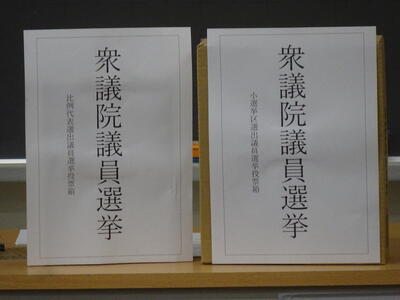 衆議院議員選挙
比例代表選出議員選挙投票箱
衆議院議員選挙
小選挙区選出議員選挙投票箱